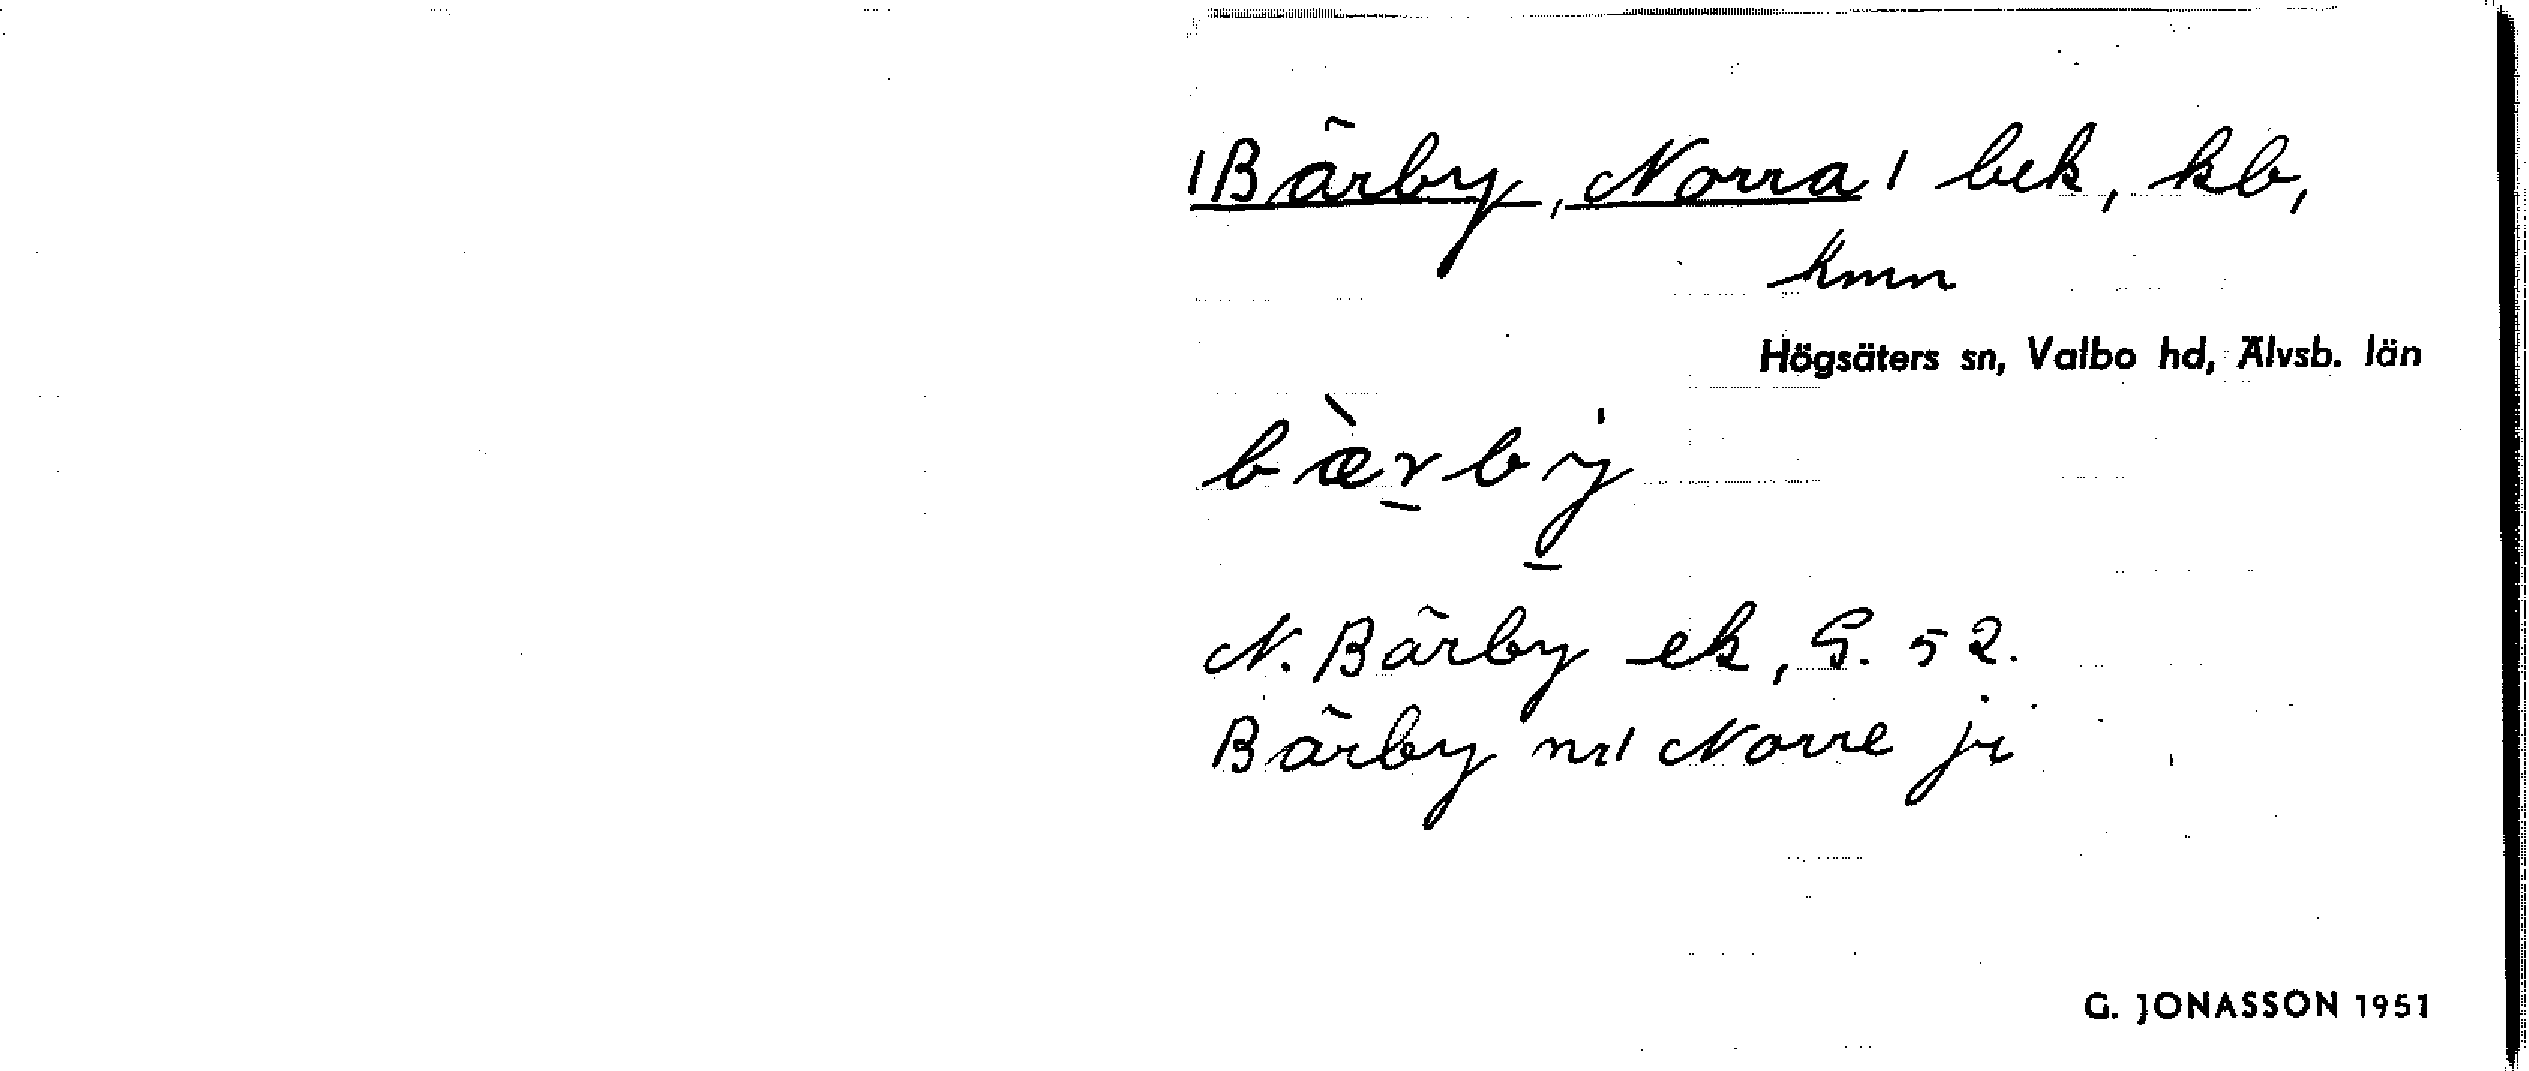 1 Bärby, Norra 1 bek, kb,
hmn
Högsäters sn, Valbo hd, Älvsb. län
bæ̀rby
N. Bärby ek, G. 52.
Bärby nr 1 Norre ji
G. JONASSON 1951